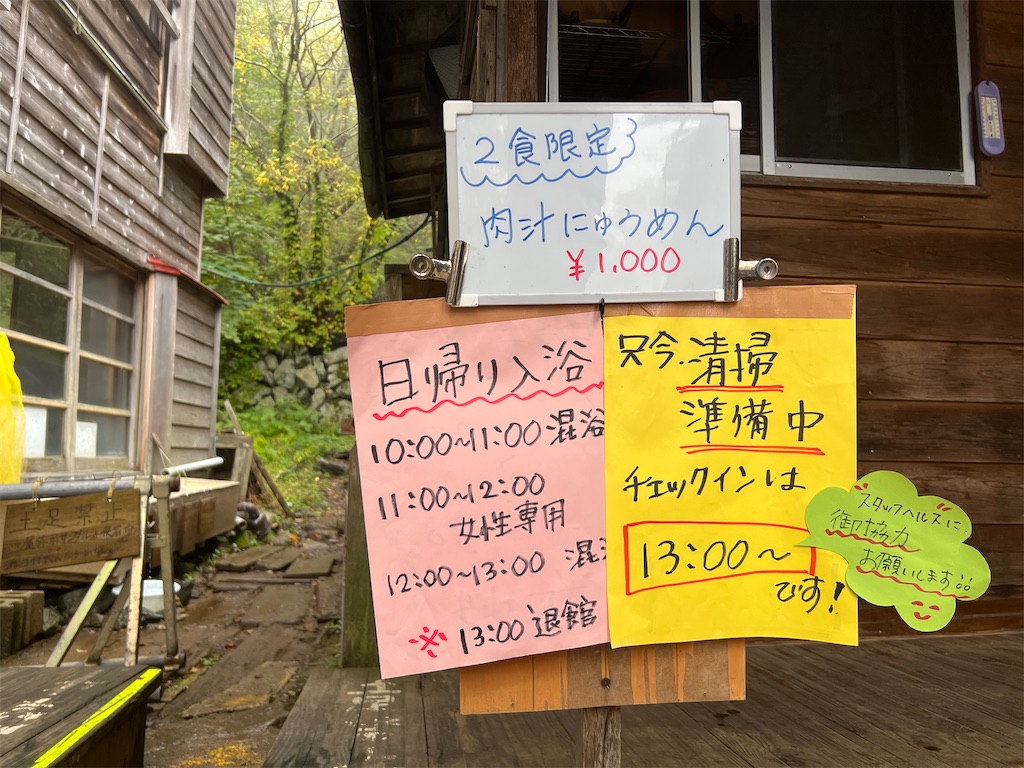 2食限定
肉汁にゅうめん
¥1.000
日帰り入浴
10:00~11:00 混浴
11:00~12:00
女性専用
12:00~13:00 混
※ 13:00 退館
只今、清掃
準備中
チェックインは
13:00~
です!
スタッフヘルスに、
御協力
お願いします!!
土足禁止